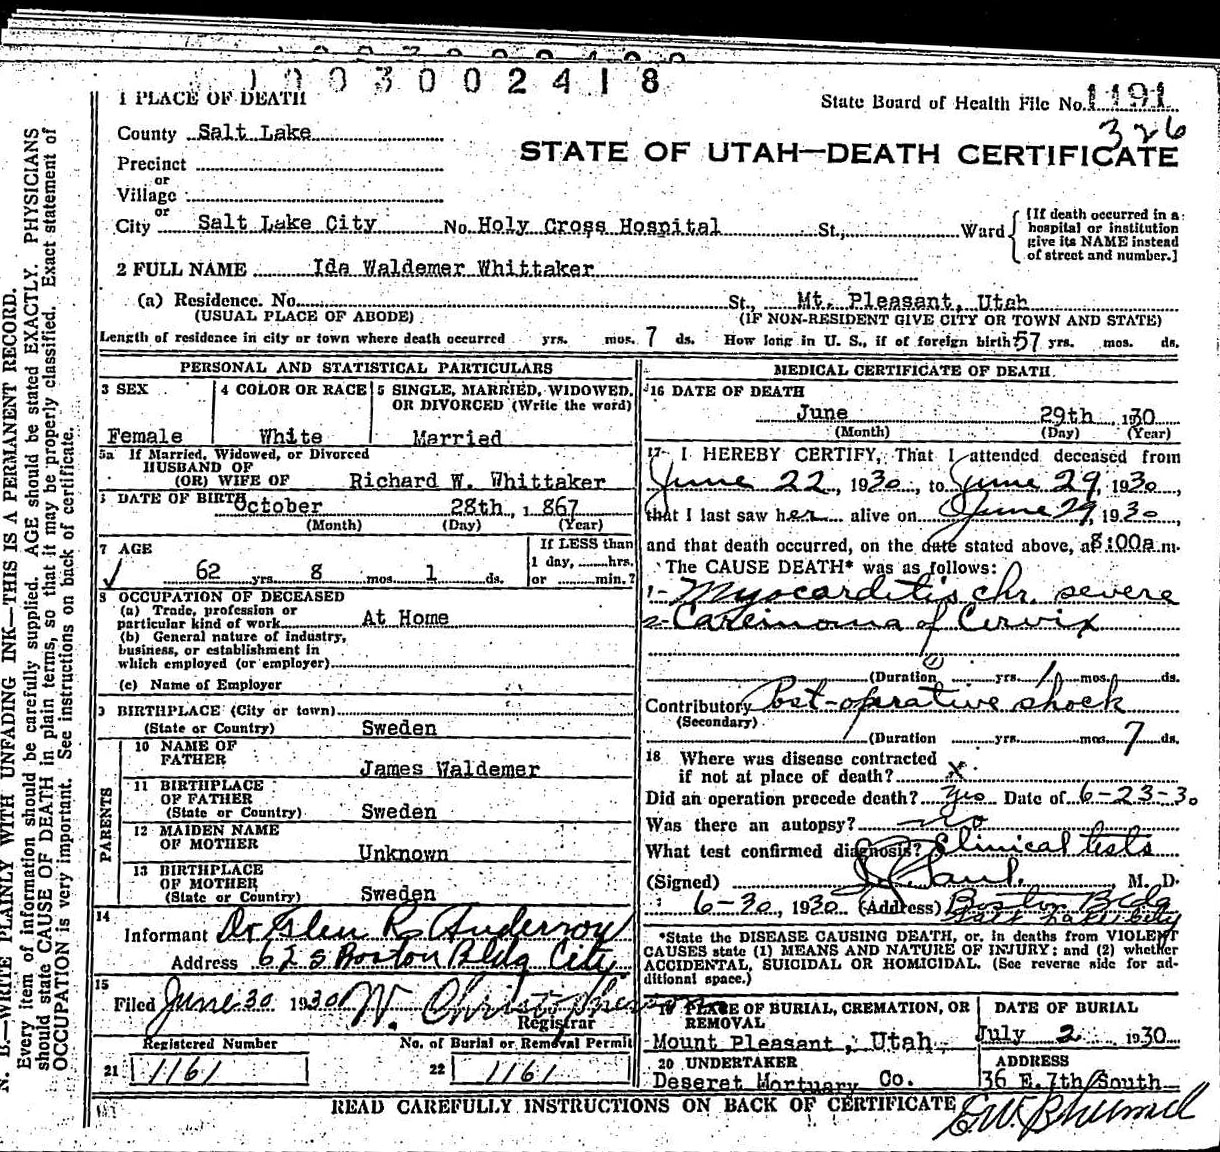 1003002418
1 PLACE OF DEATH
State Board of Health File No. 1191
326
County Salt Lake
STATE OF UTAH—DEATH CERTIFICATE
Precinct
or
Village
or
City Salt Lake City No. Holy Cross Hospital St., Ward
[If death occurred in a hospital or institution give its NAME instead of street and number.]
2 FULL NAME Ida Waldemer Whittaker
(a) Residence. No. St., Mt. Pleasant, Utah
(USUAL PLACE OF ABODE) (IF NON-RESIDENT GIVE CITY OR TOWN AND STATE)
Length of residence in city or town where death occurred yrs. mos. 7 ds. How long in U. S., if of foreign birth 57 yrs. mos. ds.
PERSONAL AND STATISTICAL PARTICULARS
3 SEX
Female
4 COLOR OR RACE
White
5 SINGLE, MARRIED, WIDOWED,
OR DIVORCED (Write the word)
Married
5a If Married, Widowed, or Divorced
HUSBAND OF
(OR) WIFE OF Richard W. Whittaker
6 DATE OF BIRTH October 28th, 1867
(Month) (Day) (Year)
7 AGE
62 yrs. 8 mos. 1 ds.
If LESS than
1 day, hrs.
or min.?
8 OCCUPATION OF DECEASED
(a) Trade, profession or
particular kind of work At Home
(b) General nature of industry,
business, or establishment in
which employed (or employer)
(c) Name of Employer
9 BIRTHPLACE (City or town)
(State or Country) Sweden
PARENTS
10 NAME OF
FATHER James Waldemer
11 BIRTHPLACE
OF FATHER
(State or Country) Sweden
12 MAIDEN NAME
OF MOTHER Unknown
13 BIRTHPLACE
OF MOTHER
(State or Country) Sweden
14
Informant Dr Glen R Anderson
Address 625 Boston Bldg City
15
Filed June 30 1930 W. Christophersen
Registrar
Registered Number
21 1161
No. of Burial or Removal Permit
22 1161
MEDICAL CERTIFICATE OF DEATH
16 DATE OF DEATH
June 29th 1930
(Month) (Day) (Year)
17 I HEREBY CERTIFY, That I attended deceased from
June 22, 1930, to June 29, 1930,
that I last saw her alive on June 29, 1930,
and that death occurred, on the date stated above, at 8:00a.m.
The CAUSE DEATH* was as follows:
1- Myocarditis chr. severe
2- Carcinoma of Cervix
(Duration yrs. 1 mos. ds.
Contributory Post-operative shock
(Secondary)
(Duration yrs. mos. 7 ds.
18 Where was disease contracted
if not at place of death? x
Did an operation precede death? yes Date of 6-23-30
Was there an autopsy? no
What test confirmed diagnosis? Clinical tests
(Signed) M. D.
6-30, 1930 (Address) Boston Bldg
Salt Lake City
*State the DISEASE CAUSING DEATH, or, in deaths from VIOLENT
CAUSES state (1) MEANS AND NATURE OF INJURY; and (2) whether
ACCIDENTAL, SUICIDAL OR HOMICIDAL. (See reverse side for ad-
ditional space.)
19 PLACE OF BURIAL, CREMATION, OR
REMOVAL
Mount Pleasant, Utah
DATE OF BURIAL
July 2 1930
20 UNDERTAKER
Deseret Mortuary Co.
ADDRESS
36 E. 7th South
READ CAREFULLY INSTRUCTIONS ON BACK OF CERTIFICATE
N. B.—WRITE PLAINLY WITH UNFADING INK—THIS IS A PERMANENT RECORD.
Every item of information should be carefully supplied. AGE should be stated EXACTLY. PHYSICIANS
should state CAUSE OF DEATH in plain terms, so that it may be properly classified. Exact statement of
OCCUPATION is very important. See instructions on back of certificate.